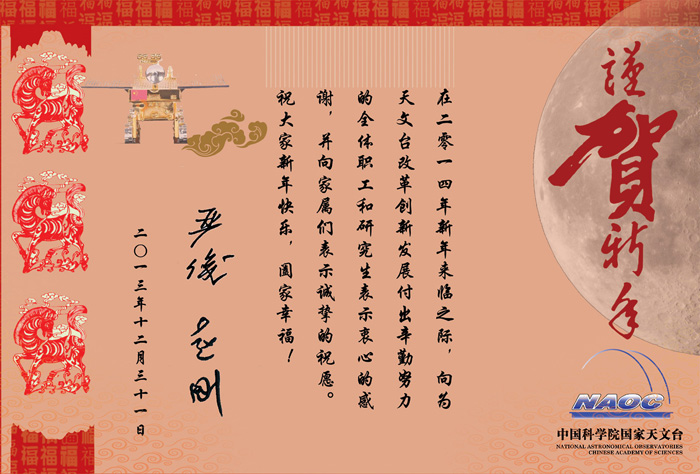 謹賀新年
在二零一四年新年来临之际，向为
天文台改革创新发展付出辛勤努力
的全体职工和研究生表示衷心的感
谢，并向家属们表示诚挚的祝愿。
祝大家新年快乐，阖家幸福！
严俊 赵刚
二〇一三年十二月三十一日
NAOC
中国科学院国家天文台
NATIONAL ASTRONOMICAL OBSERVATORIES
CHINESE ACADEMY OF SCIENCES
福福福福福福福福福福福福